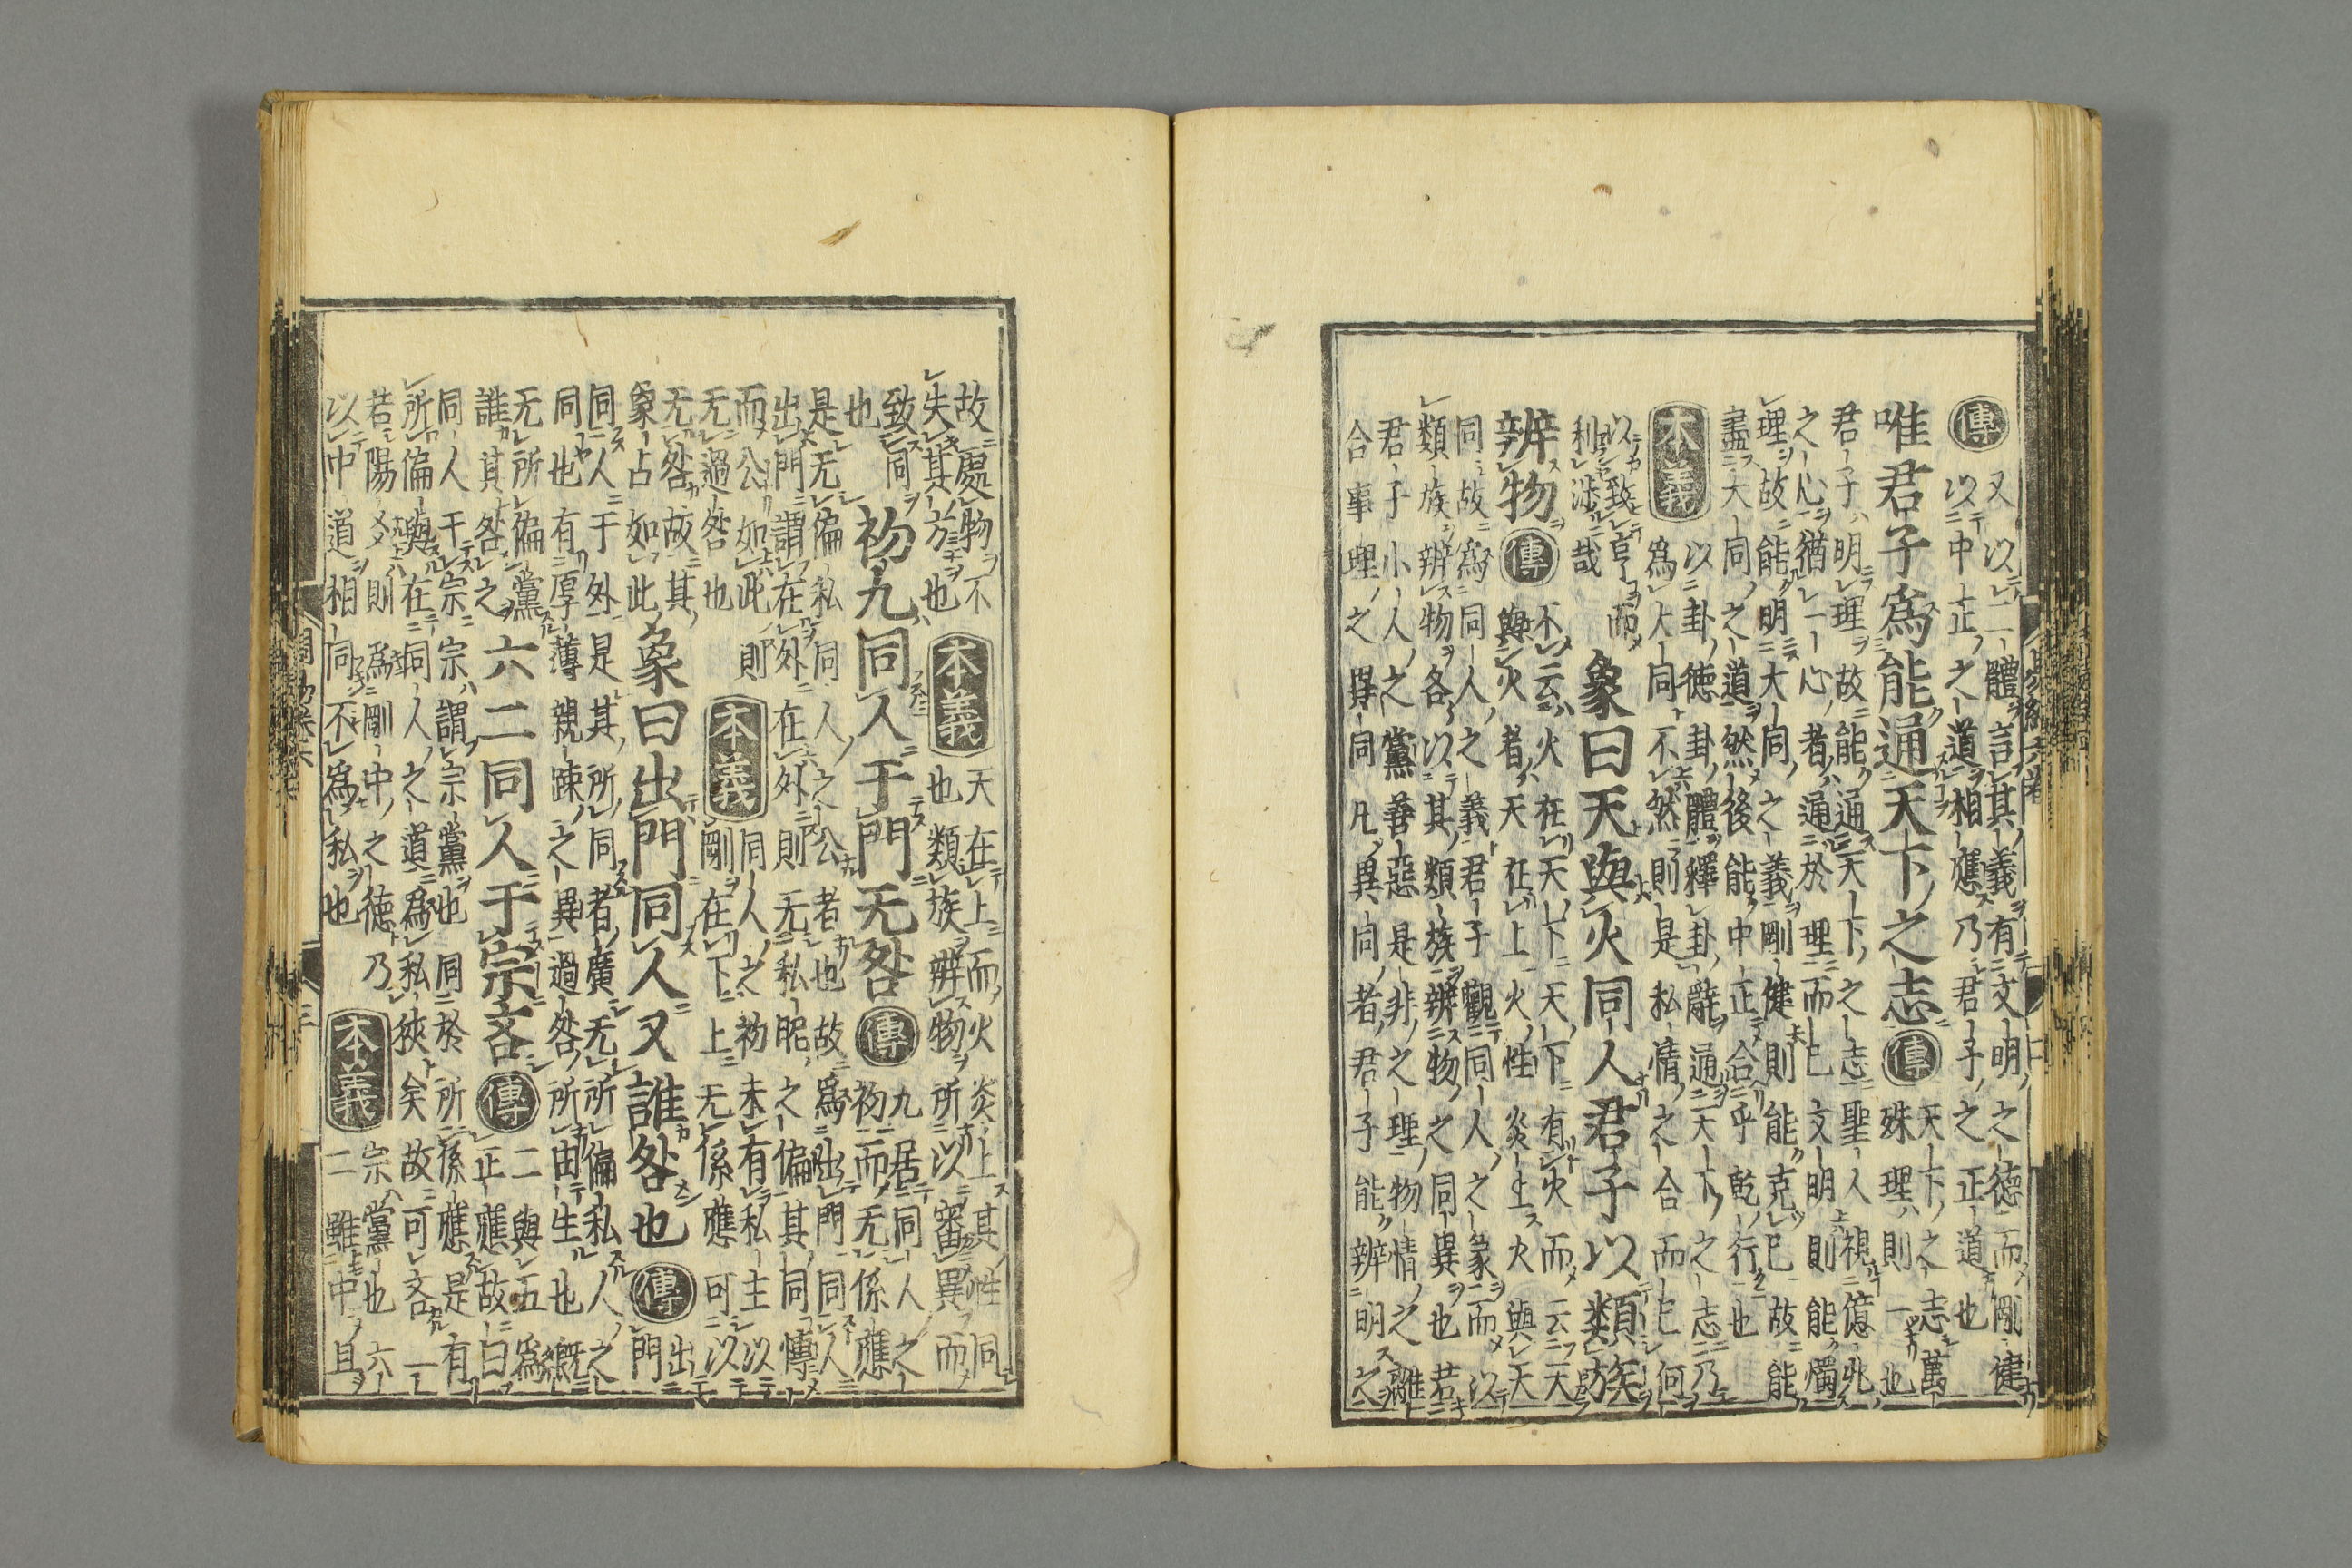 傳 又以二體言其義有文明之德而剛健
以中正之道相應乃君子之正道也
唯君子爲能通天下之志 傳 天下之志萬
殊理則一也
君子明理故能通天下之志聖人視億兆
之心猶一心者通於理而已文明則能燭
理故能明大同之義剛健則能克已故能
盡大同之道然後能中正合乎乾行也
本義 以卦德卦體釋卦辭通天下之志乃
爲大同不然則是私情之合而已何
以致亨而
利涉哉 象曰天與火同人君子以類族
辨物 傳 不云火在天下天下有火而云天
與火者天在上火性炎上火與天
同故爲同人之義君子觀同人之象而以
類族辨物各以其類族辨物之同異也若
君子小人之黨善惡是非之理物情之離
合事理之異同凡異同者君子能辨明之
故處物不
失其方也 本義 天在上而火炎上其性同
也類族辨物所以審異而
致同
也 初九同人于門无咎 傳 九居同人之
初而无係應
是无偏私同人之公者也故爲出門同人
出門謂在外在外則无私昵之偏其同博
而公如此則
无過咎也 本義 同人之初未有私主以
剛在下上无係應可以
无咎故其
象占如此 象曰出門同人又誰咎也 傳 出
門
同人于外是其所同者廣无所偏私人之
同也有厚薄親踈之異過咎所由生也既
无所偏黨
誰其咎之 六二同人于宗吝 傳 二與五爲
正應故曰
同人于宗宗謂宗黨也同於所係應是有
所偏與在同人之道爲私狹矣故可吝
若陽爻則爲剛中之德乃
以中道相同不爲私也 本義 宗黨也六
二雖中且